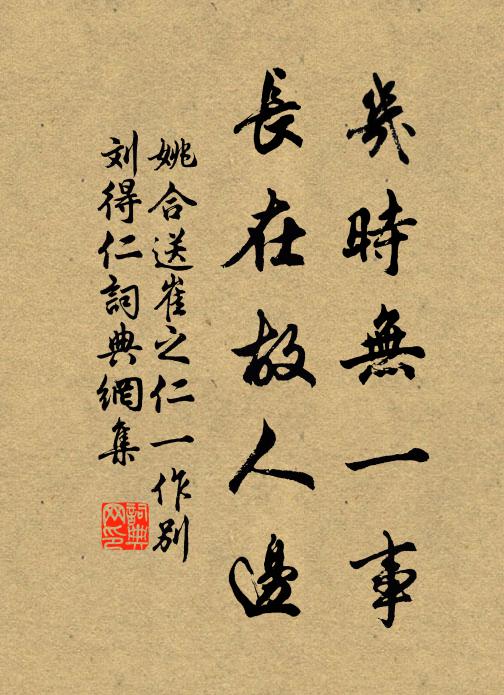 幾時無一事
長在故人邊
姚合送崔之仁一作別
刘得仁詞典網集
詞典
网印